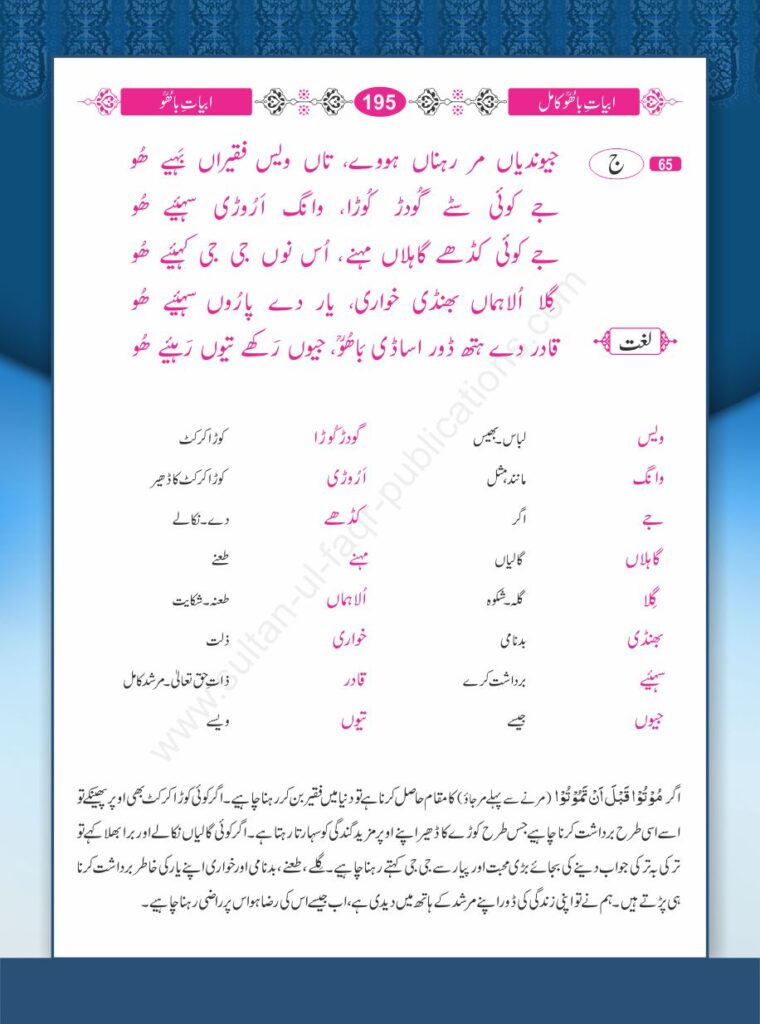 ابیاتِ باھُوؒ کامل 195 ابیاتِ باھُوؒ
65 ج
جیوندیاں مر رہناں ہووے، تاں ویس فقیراں بَہیے ھُو
جے کوئی سٹے گُودڑ کُوڑا، وانگ اَرُوڑی سہیٔے ھُو
جے کوئی کڈھے گاہلاں مہنے، اُس نوں جی جی کہیٔے ھُو
گِلا اُلاہماں بھنڈی خواری، یار دے پارُوں سہیٔے ھُو
قادر دے ہتھ ڈور اساڈی بَاھُوؒ، جیوں رَکھے تیوں رَہیٔے ھُو
لغت
ویس لباس۔بھیس گودڑ کُوڑا کوڑا کرکٹ
وانگ مانند،مثل اَرُوڑی کوڑا کرکٹ کا ڈھیر
جے اگر کڈھے دے۔نکالے
گاہلاں گالیاں مہنے طعنے
گِلا گلہ۔شکوہ اُلاہماں طعنہ۔شکایت
بھنڈی بدنامی خواری ذلت
سہیٔے برداشت کرے قادر ذاتِ حق تعالیٰ۔مرشد کامل
جیوں جیسے تیوں ویسے
اگر مُوْتُوْا قَبْلَ اَنْ تَمُوْتُوْا (مرنے سے پہلے مرجاؤ) کا مقام حاصل کرنا ہے تو دنیا میں فقیر بن کر رہنا چاہیے۔ اگر کوئی کوڑا کرکٹ بھی اوپر پھینکے تو
اسے اسی طرح برداشت کرنا چاہیے جس طرح کوڑے کا ڈھیر اپنے اوپر مزید گندگی کو سہارتا رہتا ہے۔ اگر کوئی گالیاں نکالے اور برا بھلا کہے تو
ترکی بہ ترکی جواب دینے کی بجائے بڑی محبت اور پیار سے جی جی کہتے رہنا چاہیے۔ گلے، طعنے، بدنامی اور خواری اپنے یار کی خاطر برداشت کرنا
ہی پڑتے ہیں۔ ہم نے تو اپنی زندگی کی ڈور اپنے مرشد کے ہاتھ میں دیدی ہے، اب جیسے اس کی رضا ہو اس پر راضی رہنا چاہیے۔
www.sultan-ul-faqr-publications.com